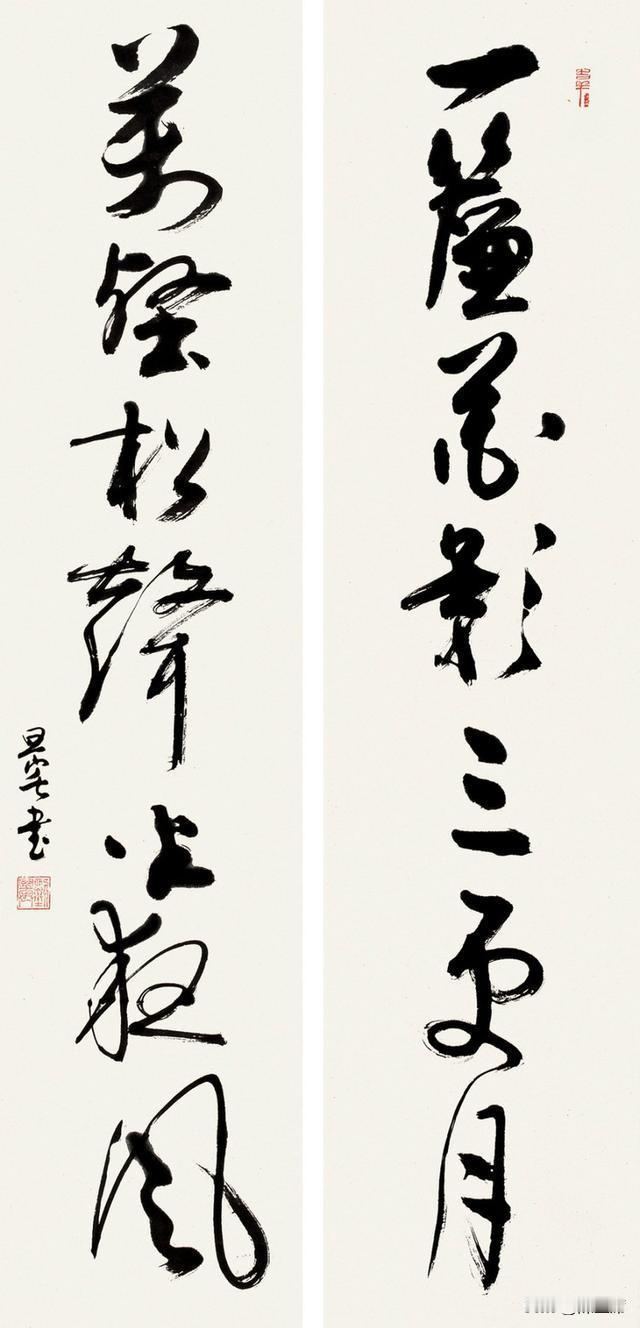 一簾花影三更月
萬壑松聲半夜風